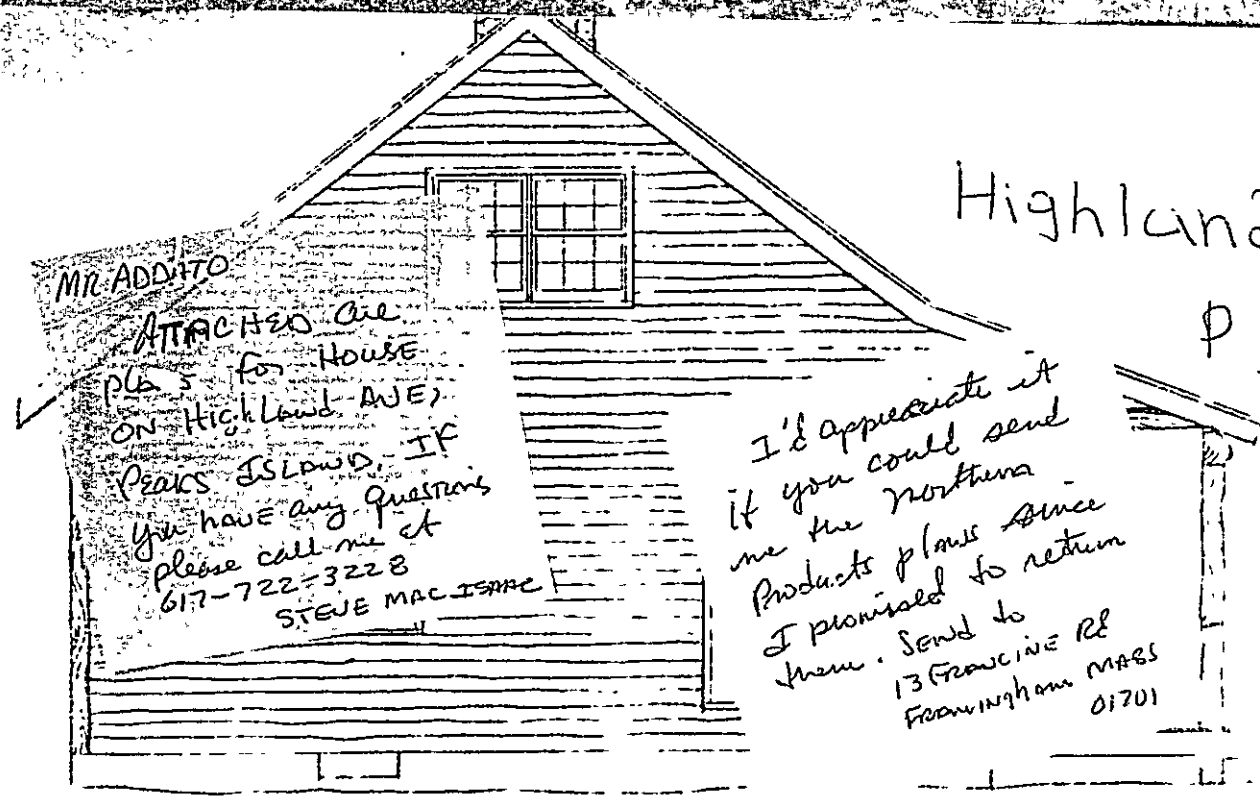 MR. ADDATO
ATTACHED are
pla s for HOUSE
ON Highland AVE,
PEAKS ISLAND. IF
you have any questions
please call me at
617-722-3228
STEVE MAC ISAAC
I'd appreciate it
if you could send
me the northern
Products plans since
I promised to return
them. Send to
13 FRANCINE Rd
Framingham MASS
01701
Highland
P